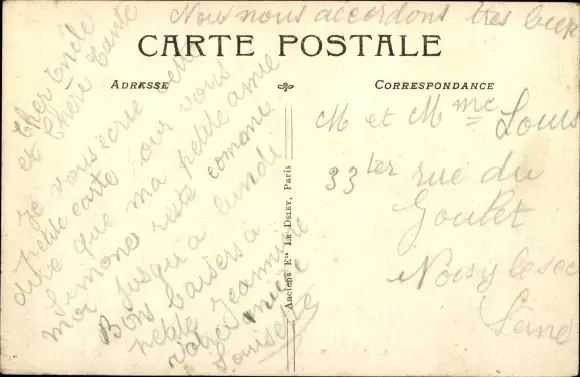 Nous nous accordons très bien
CARTE POSTALE
ADRESSE
CORRESPONDANCE
Cher Oncle
et Chère Tante
Je vous écrie cette
petite carte pour vous
dire que ma petite amie
Simone reste comame
moi jusqu'a lundi
Bons baisers a
petite Jeannine
votre amie
Louisette
Anciens Ets LE DELEY, Paris
M et Mme Louis
33 ter rue du
Goulet
Noisy le sec
Seine